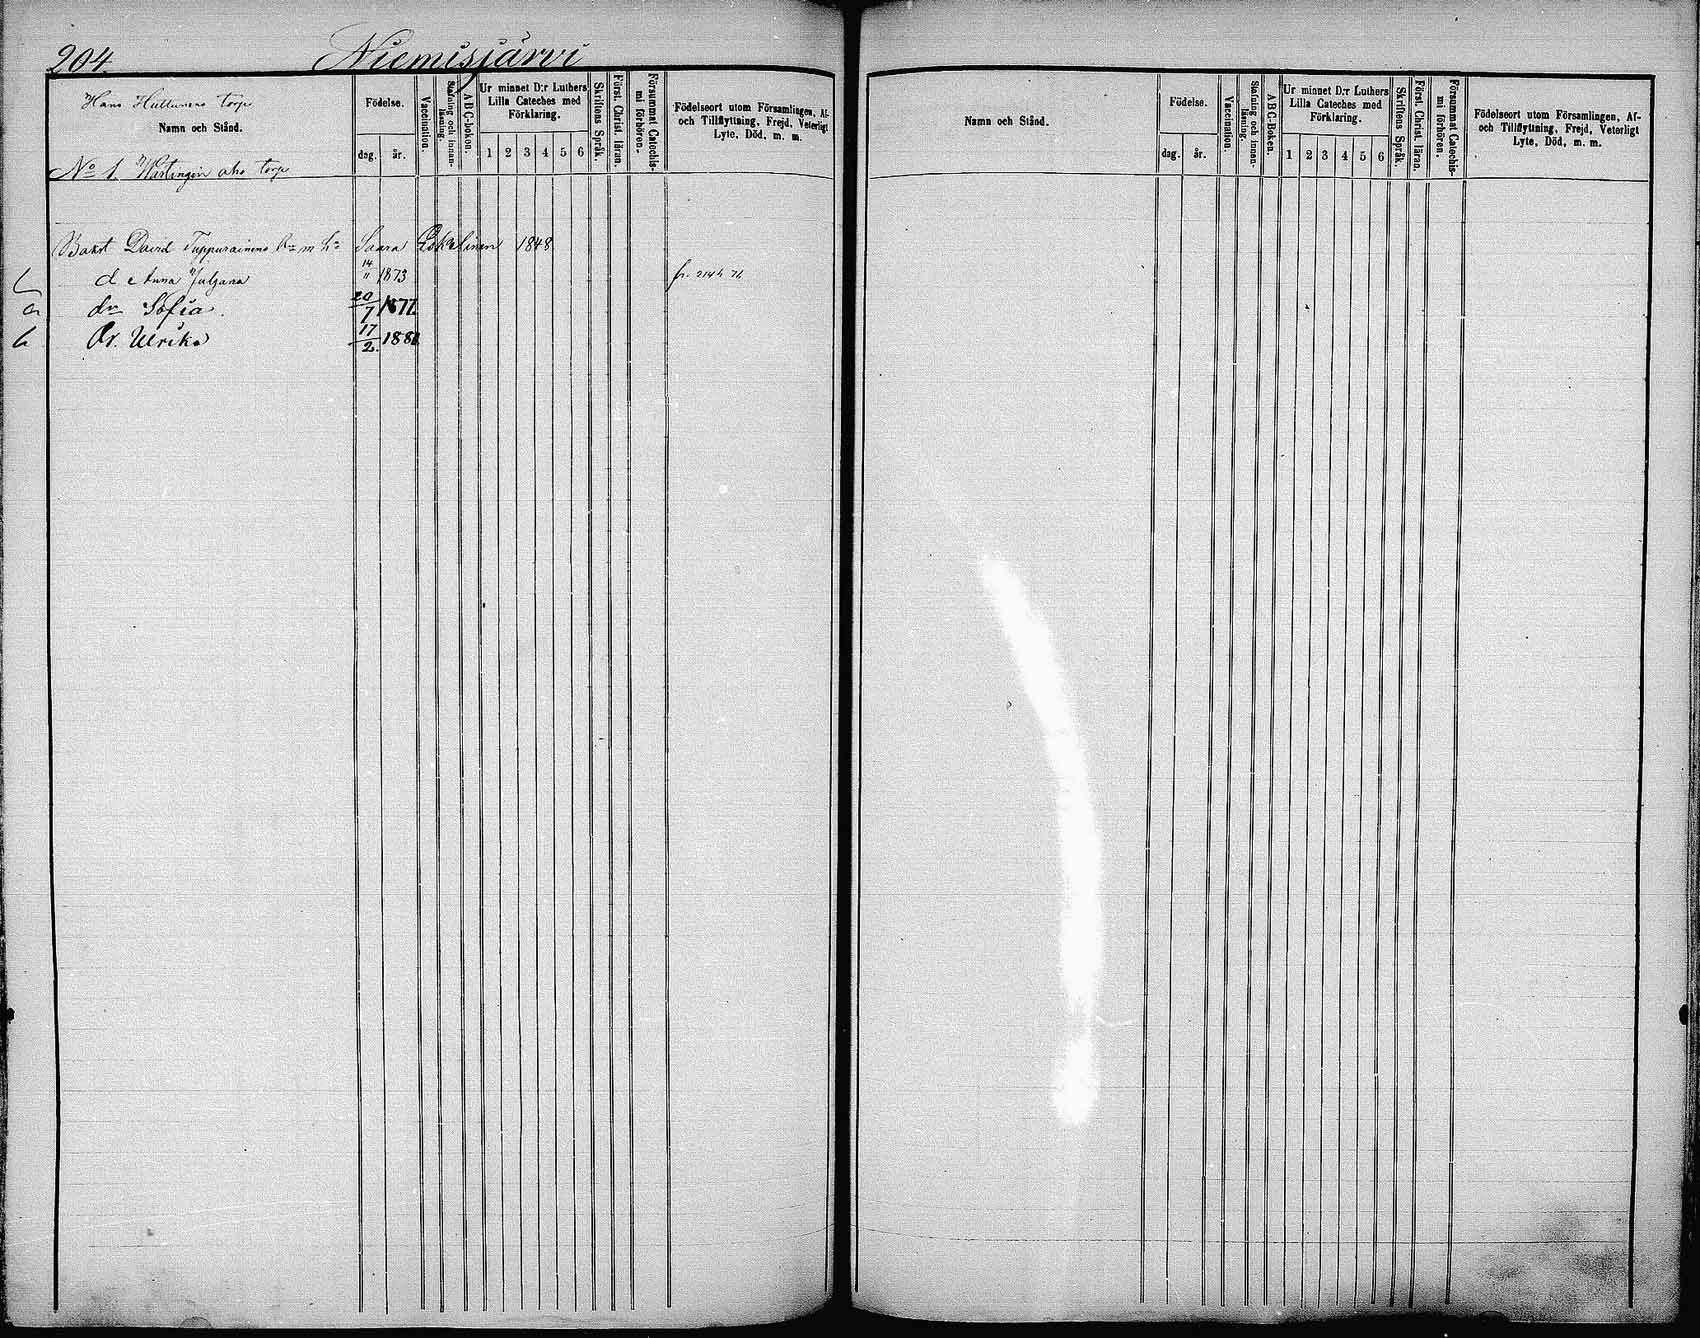 204. Niemisjärvi
Hans Hullunens torp
Namn och Stånd.
Födelse.
dag. år.
Vaccination.
Stafning och innan-läsning.
A B C-boken.
Ur minnet D:r Luthers
Lilla Cateches med
Förklaring.
1 2 3 4 5 6
Skriftens Språk.
Först. Christ. läran.
Försummat Catechis-
mi förhören.
Födelseort utom Församlingen, Af-
och Tillflyttning, Frejd, Veterligt
Lyte, Död, m. m.
No 1. aho torp
David Tuppurainens Saara 1848
d Anna 14/11 1873 fr.
dr Sofia. 20/7 1877
Dr. Ulrika 17/2. 188
Namn och Stånd.
Födelse.
dag. år.
Vaccination.
Stafning och innan-
läsning.
A B C-Boken.
Ur minnet D:r Luthers
Lilla Cateches med
Förklaring.
1 2 3 4 5 6
Skriftens Språk.
Först. Christ. läran.
Försummat Catechis-
mi förhören.
Födelseort utom Församlingen, Af-
och Tillflyttning, Frejd, Veterligt
Lyte, Död, m. m.